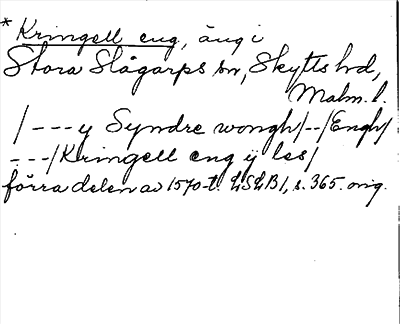 * Kringell eng, äng i
Stora Slågarps sn, Skytts hd,
Malm. l.
/---y Syndre wongh/--/Engh/
---/Kringell eng ÿ les/
förra delen av 1570-t. LSLB1, s. 365. orig.